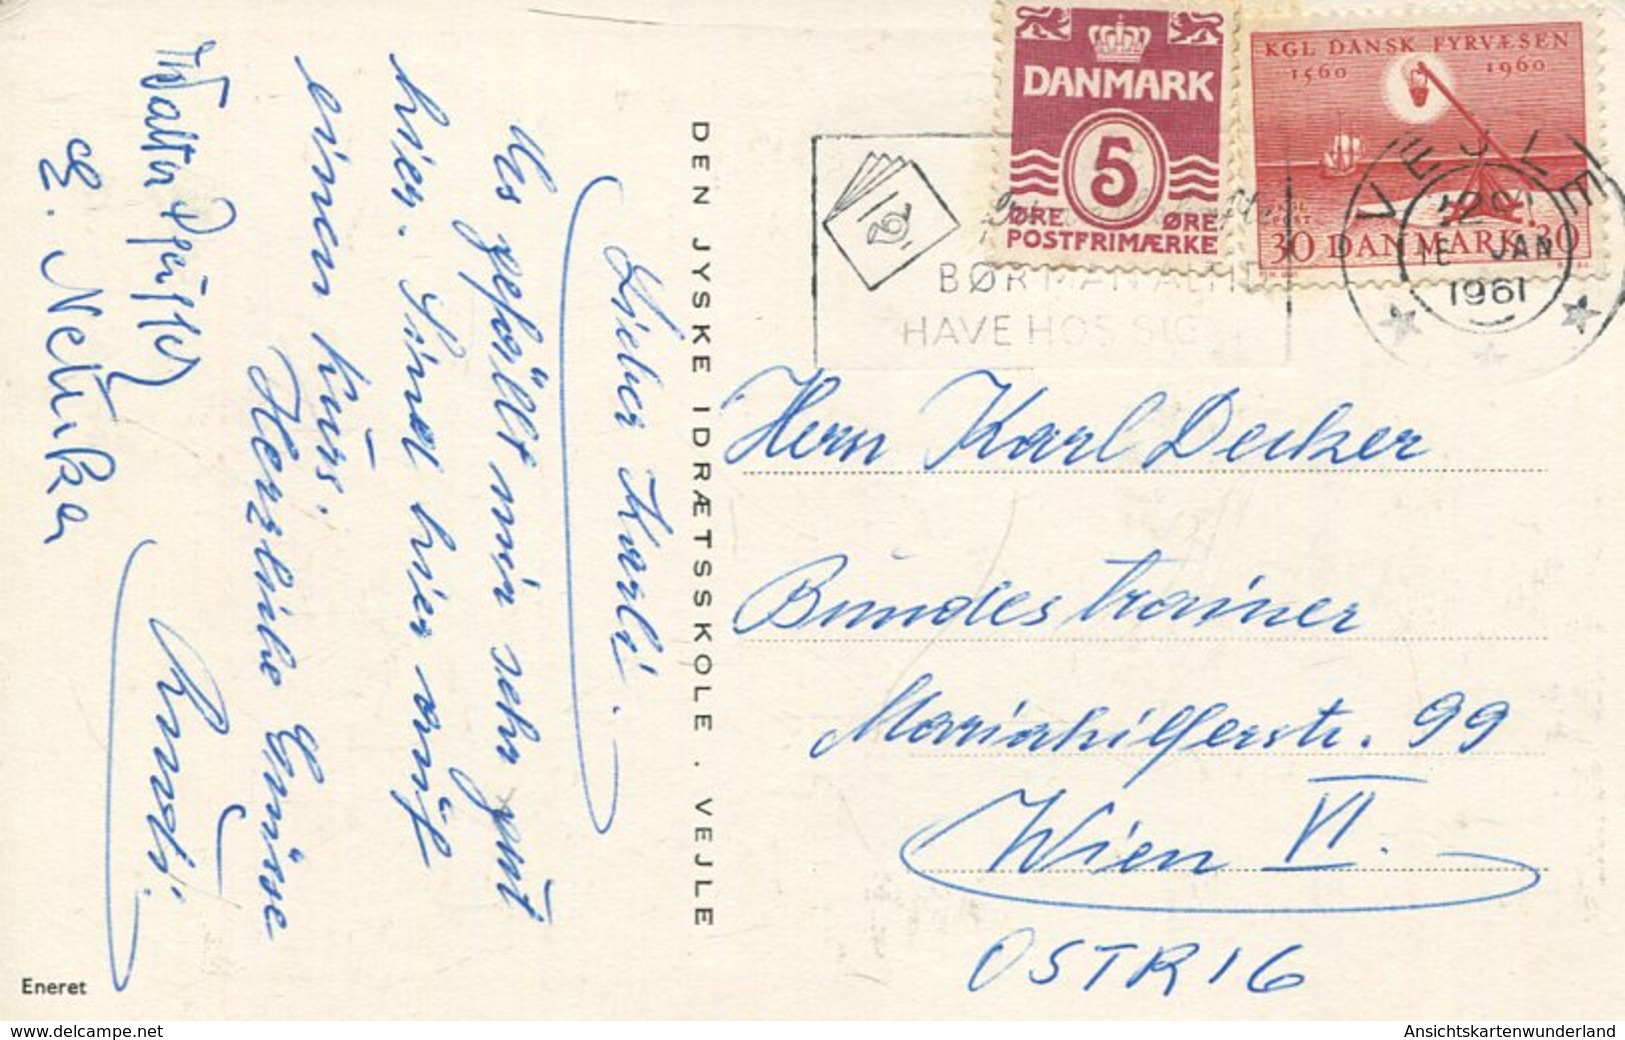 DANMARK
5
ØRE ØRE
POSTFRIMÆRKE
KGL DANSK FYRVÆSEN
1560 1960
30 DANMARK 30
VEJLE
JAN
1961
BØR MAN ALTID
HAVE HOS SIG
DEN JYSKE IDRÆTSSKOLE . VEJLE
Lieber Karli.
Es gefällt mir sehr gut
hier. Sind hier auf
einen Kurs.
Herzliche Grüsse
Rudi
Walter
Herrn Karl Decker
Bundestrainer
Mariahilferstr. 99
Wien VI.
OSTRIG
Eneret
www.delcampe.net
Ansichtskartenwunderland